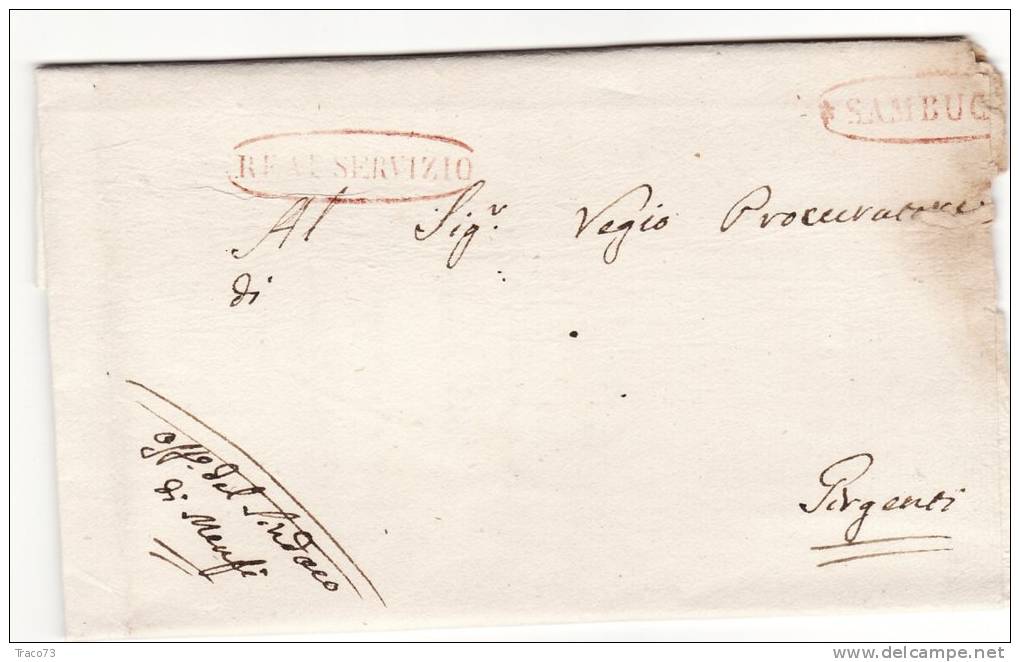 * SAMBUC
REAL SERVIZIO
Al Sig.r Regio Procuratore
di
Girgenti
Off.o del Sindaco
di Menfi
Traco73
www.delcampe.net